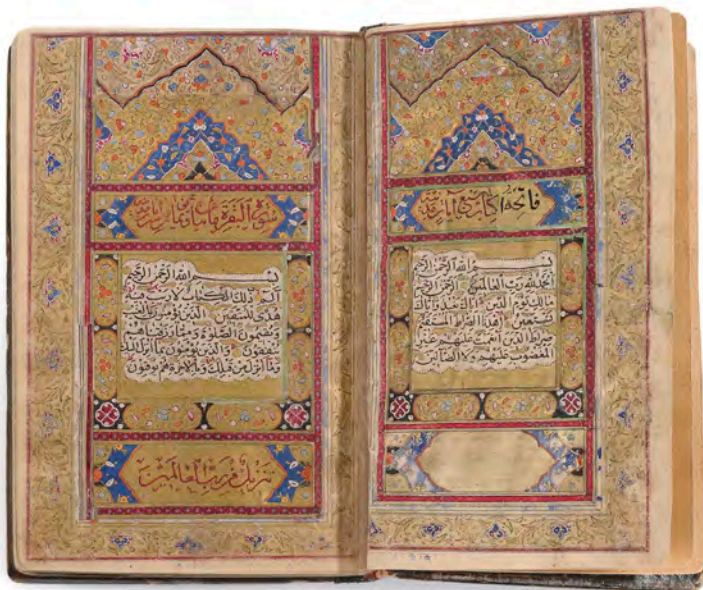 فاتحة الكتاب سبع آيات
بسم الله الرحمن الرحيم
الحمد لله رب العالمين الرحمن الرحيم
مالك يوم الدين اياك نعبد واياك
نستعين اهدنا الصراط المستقيم
صراط الذين انعمت عليهم غير
المغضوب عليهم ولا الضالين
سورة البقرة مائتان
بسم الله الرحمن الرحيم
الم ذلك الكتاب لا ريب فيه
هدى للمتقين الذين يؤمنون بالغيب
ويقيمون الصلوة ومما رزقناهم
ينفقون والذين يؤمنون بما انزل اليك
وما انزل من قبلك وبالاخرة هم يوقنون
تنزيل من رب العالمين